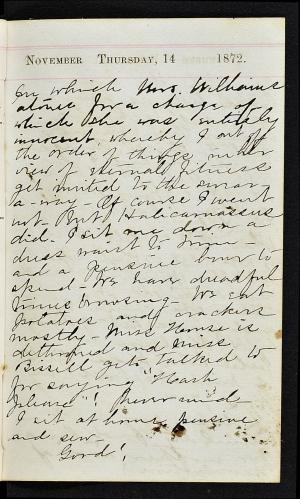 November Thursday, 14 1872.
in which Mrs. Williams
alone for a charge of
which she was entirely
innocent, whereby I out of
the order of things, under
view of eternal fitness
get invited to the
a-way - Of course I went
not. But Halicarnassus
did. I sit me down a
dress waist to
and a pensive hour to
spend - We have dreadful
times browsing - We eat
potatoes and crackers
mostly - Miss House is
dethroned and Miss
Bissell gets talked to
for saying "Hash
please"! Then we'd
I sit at home, pensive
and sew -
Good!